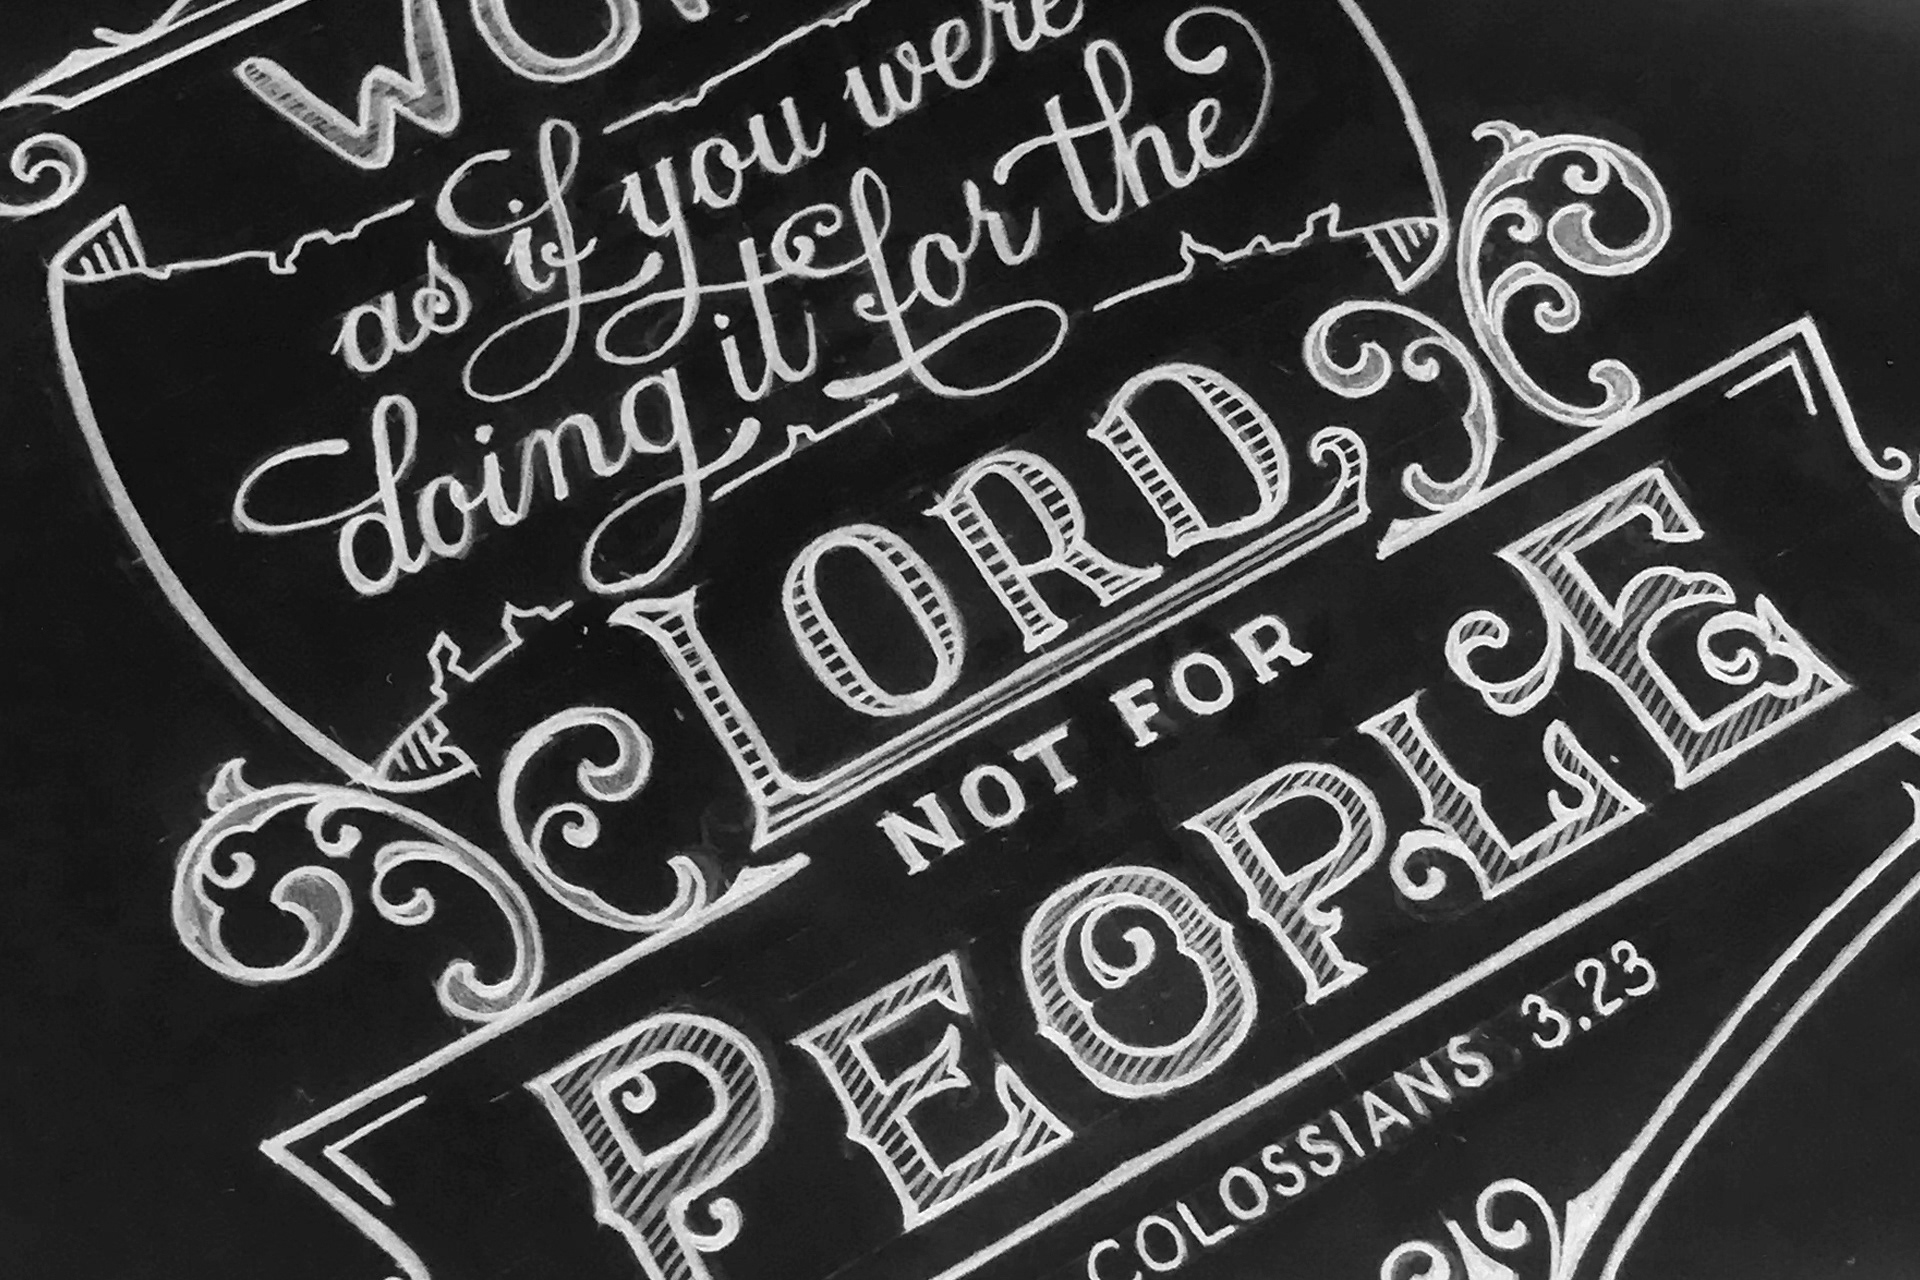 as if you were
doing it for the
LORD
NOT FOR
PEOPLE
COLOSSIANS 3.23